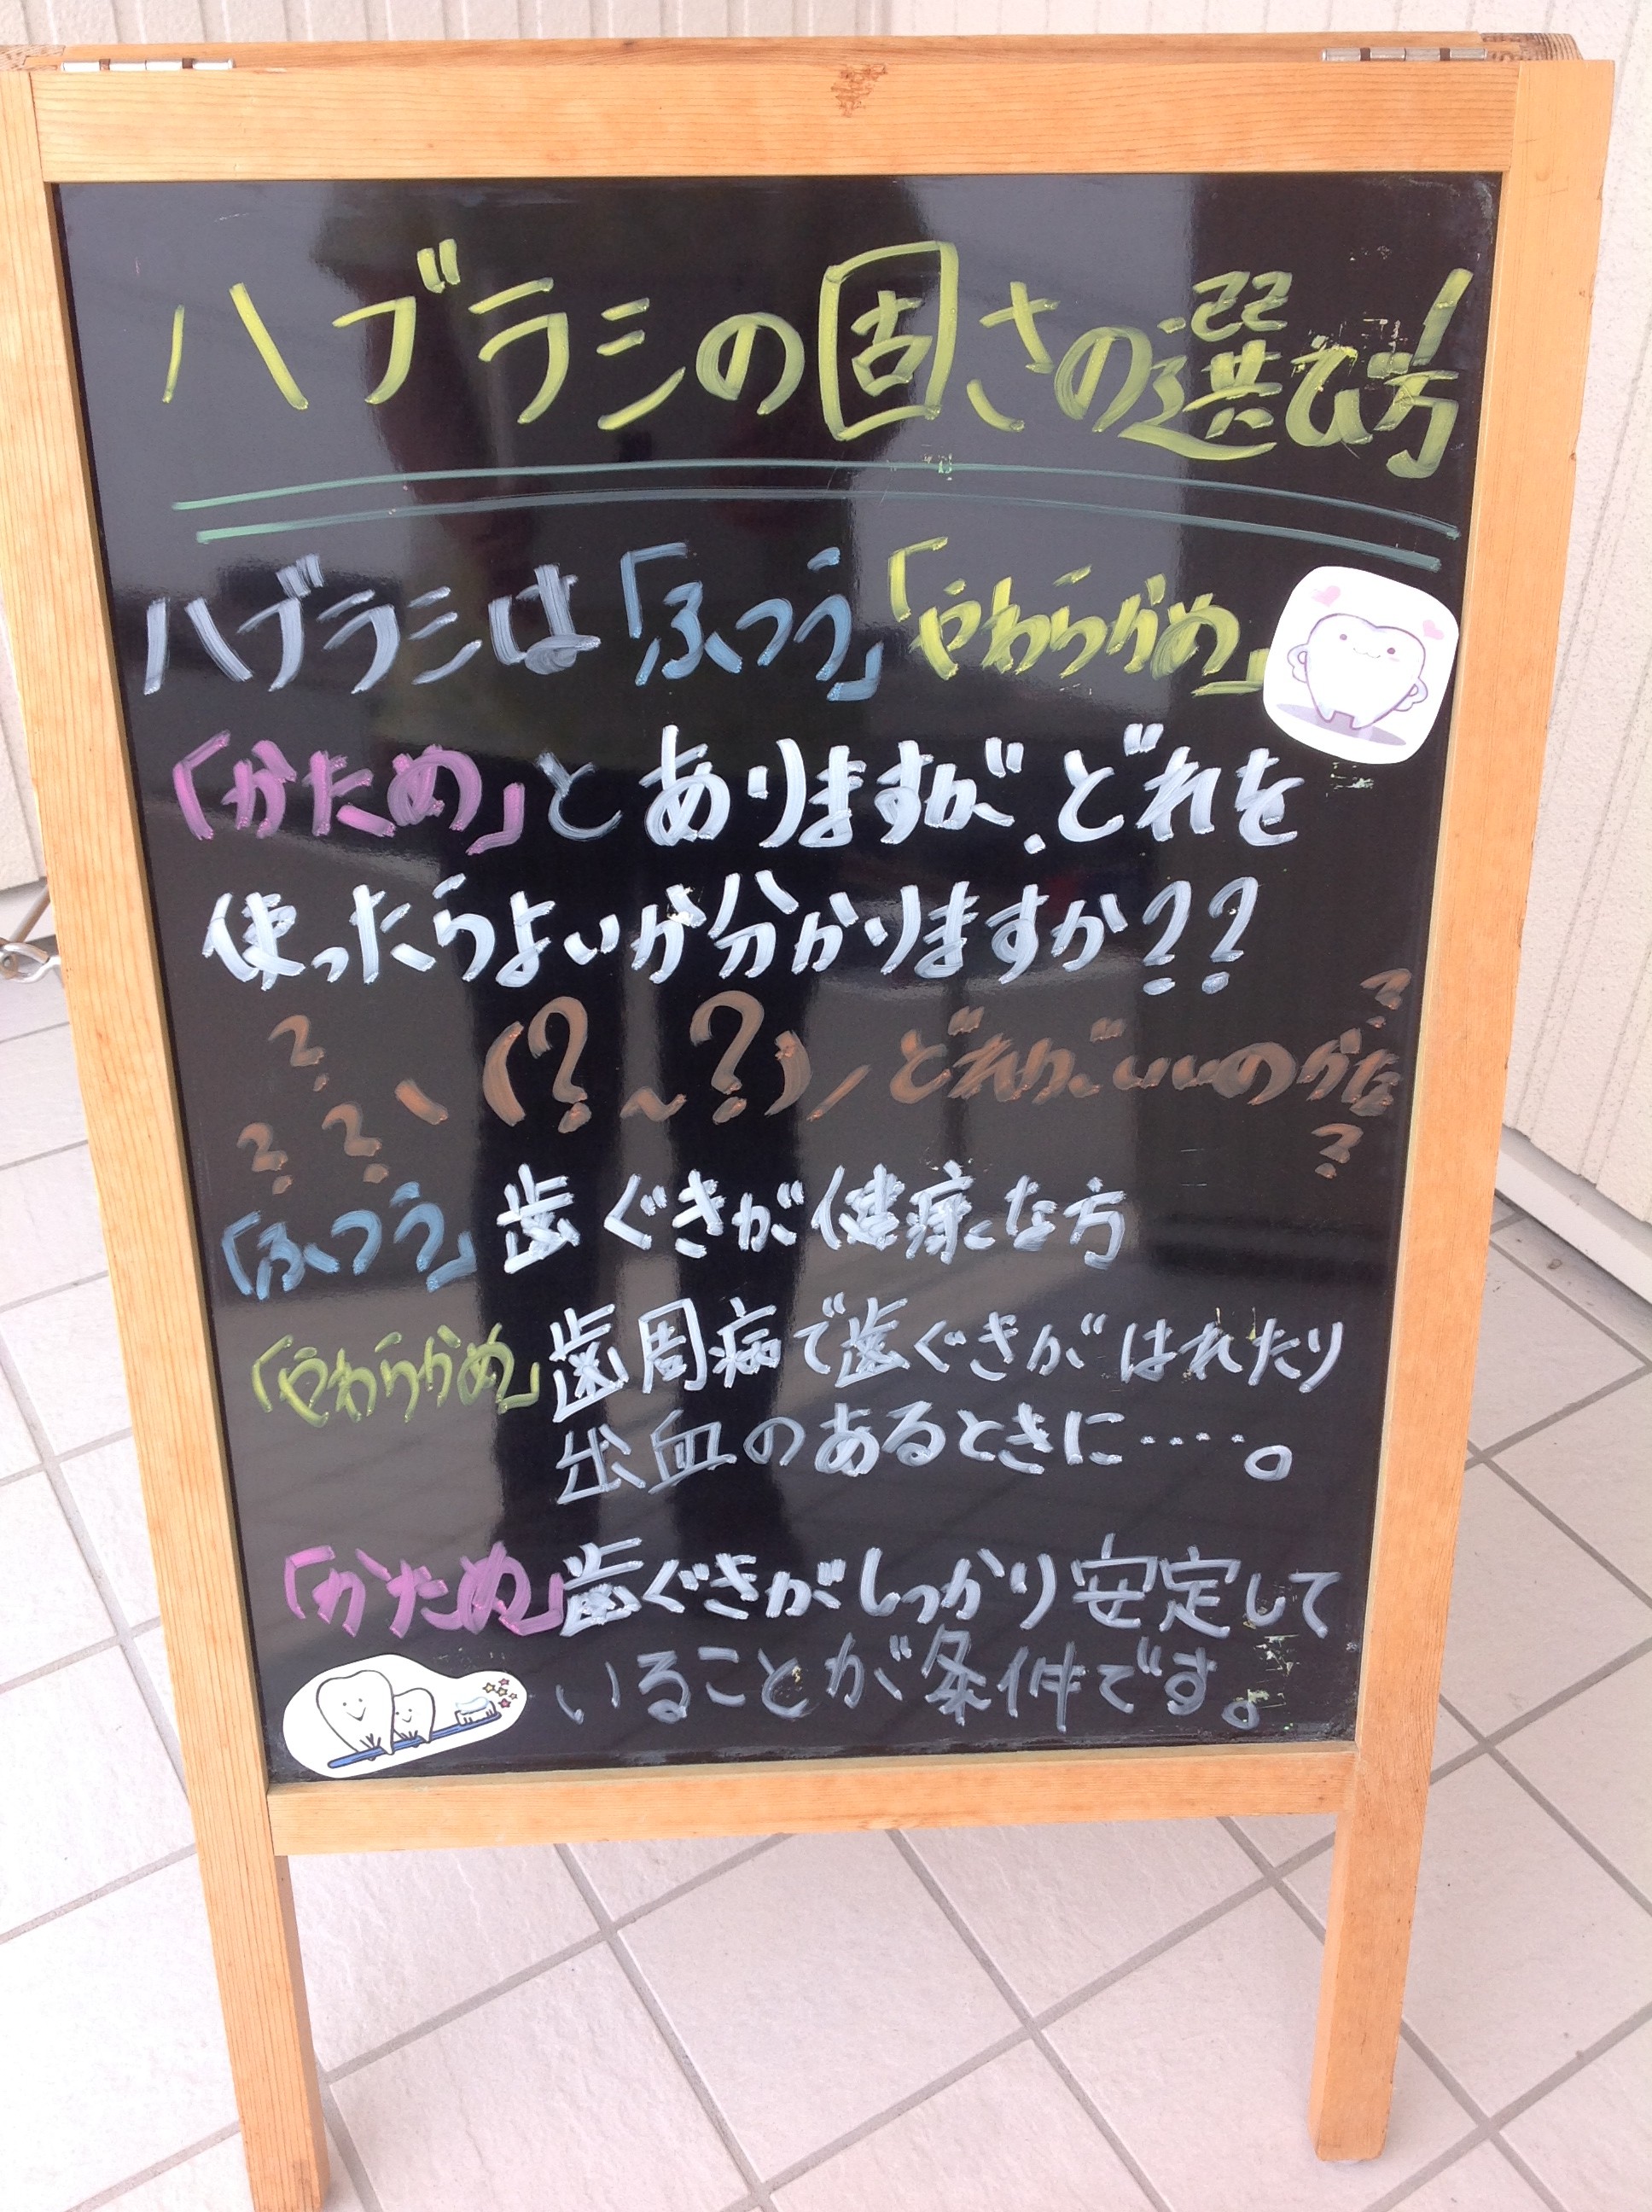 ハブラシの固さの選び方
ハブラシは「ふつう」「やわらかめ」
「かため」とありますが、どれを
使ったらよいか分かりますか??
? ? ? ヽ(?~?)ノ どれがいいのかな ? ?
「ふつう」歯ぐきが健康な方
「やわらかめ」歯周病で歯ぐきがはれたり
出血のあるときに‥‥。
「かため」歯ぐきがしっかり安定して
いることが条件です。